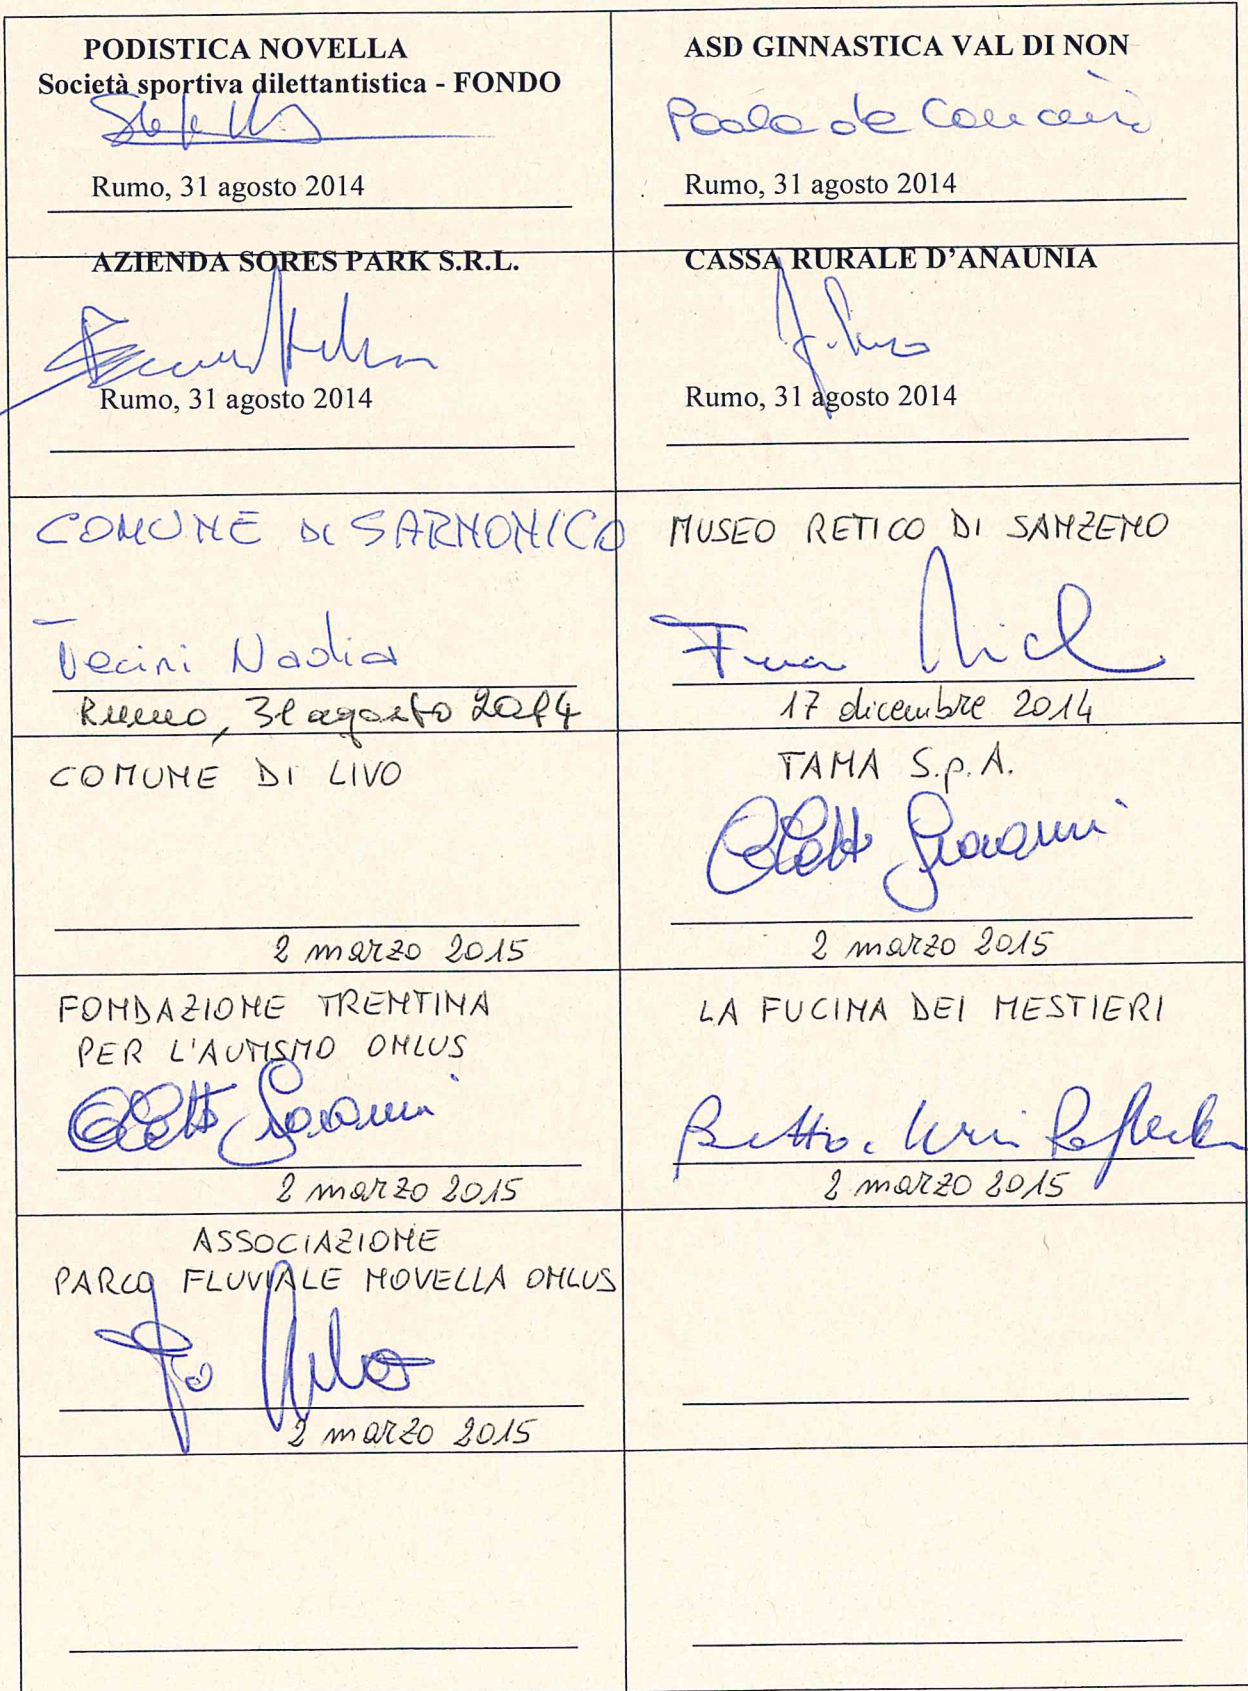 PODISTICA NOVELLA
Società sportiva dilettantistica - FONDO
Rumo, 31 agosto 2014
ASD GINNASTICA VAL DI NON
Paola de
Rumo, 31 agosto 2014
AZIENDA SORES PARK S.R.L.
Rumo, 31 agosto 2014
CASSA RURALE D'ANAUNIA
Rumo, 31 agosto 2014
COMUNE DI SARNONICO
Tecini Nadia
Rumo, 31 agosto 2014
MUSEO RETICO DI SANZENO
17 dicembre 2014
COMUNE DI LIVO
2 marzo 2015
TAMA S.p.A.
Coletti Giovanni
2 marzo 2015
FONDAZIONE TRENTINA
PER L'AUTISMO ONLUS
Coletti Giovanni
2 marzo 2015
LA FUCINA DEI MESTIERI
2 marzo 2015
ASSOCIAZIONE
PARCO FLUVIALE NOVELLA ONLUS
2 marzo 2015